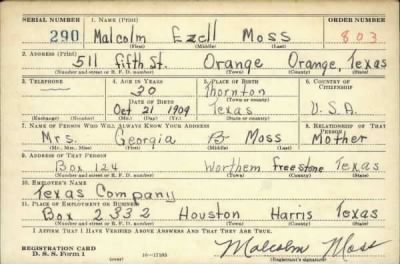 SERIAL NUMBER 1. NAME (Print) ORDER NUMBER
290 Malcolm Ezell Moss 803
(First) (Middle) (Last)
2. ADDRESS (Print)
511 fifth St. Orange Orange, Texas
(Number and street or R. F. D. number) (Town) (County) (State)
3. TELEPHONE 4. AGE IN YEARS 5. PLACE OF BIRTH 6. COUNTRY OF CITIZENSHIP
30 Thornton
DATE OF BIRTH (Town or county)
Oct 21 1909 Texas U.S.A.
(Exchange) (No.) (Mo.) (Day) (Yr.) (State or country)
7. NAME OF PERSON WHO WILL ALWAYS KNOW YOUR ADDRESS 8. RELATIONSHIP OF THAT PERSON
Mrs. Georgia B Moss Mother
(Mr., Mrs., Miss) (First) (Middle) (Last)
9. ADDRESS OF THAT PERSON
Box 124 Worthem freestone Texas
(Number and street or R. F. D. number) (Town) (County) (State)
10. EMPLOYER'S NAME
Texas Company
11. PLACE OF EMPLOYMENT OR BUSINESS
Box 2332 Houston Harris Texas
(Number and street or R. F. D. number) (Town) (County) (State)
I AFFIRM THAT I HAVE VERIFIED ABOVE ANSWERS AND THAT THEY ARE TRUE.
REGISTRATION CARD
D. S. S. Form 1 (over) 16—17105 Malcolm Moss
(Registrant's signature)